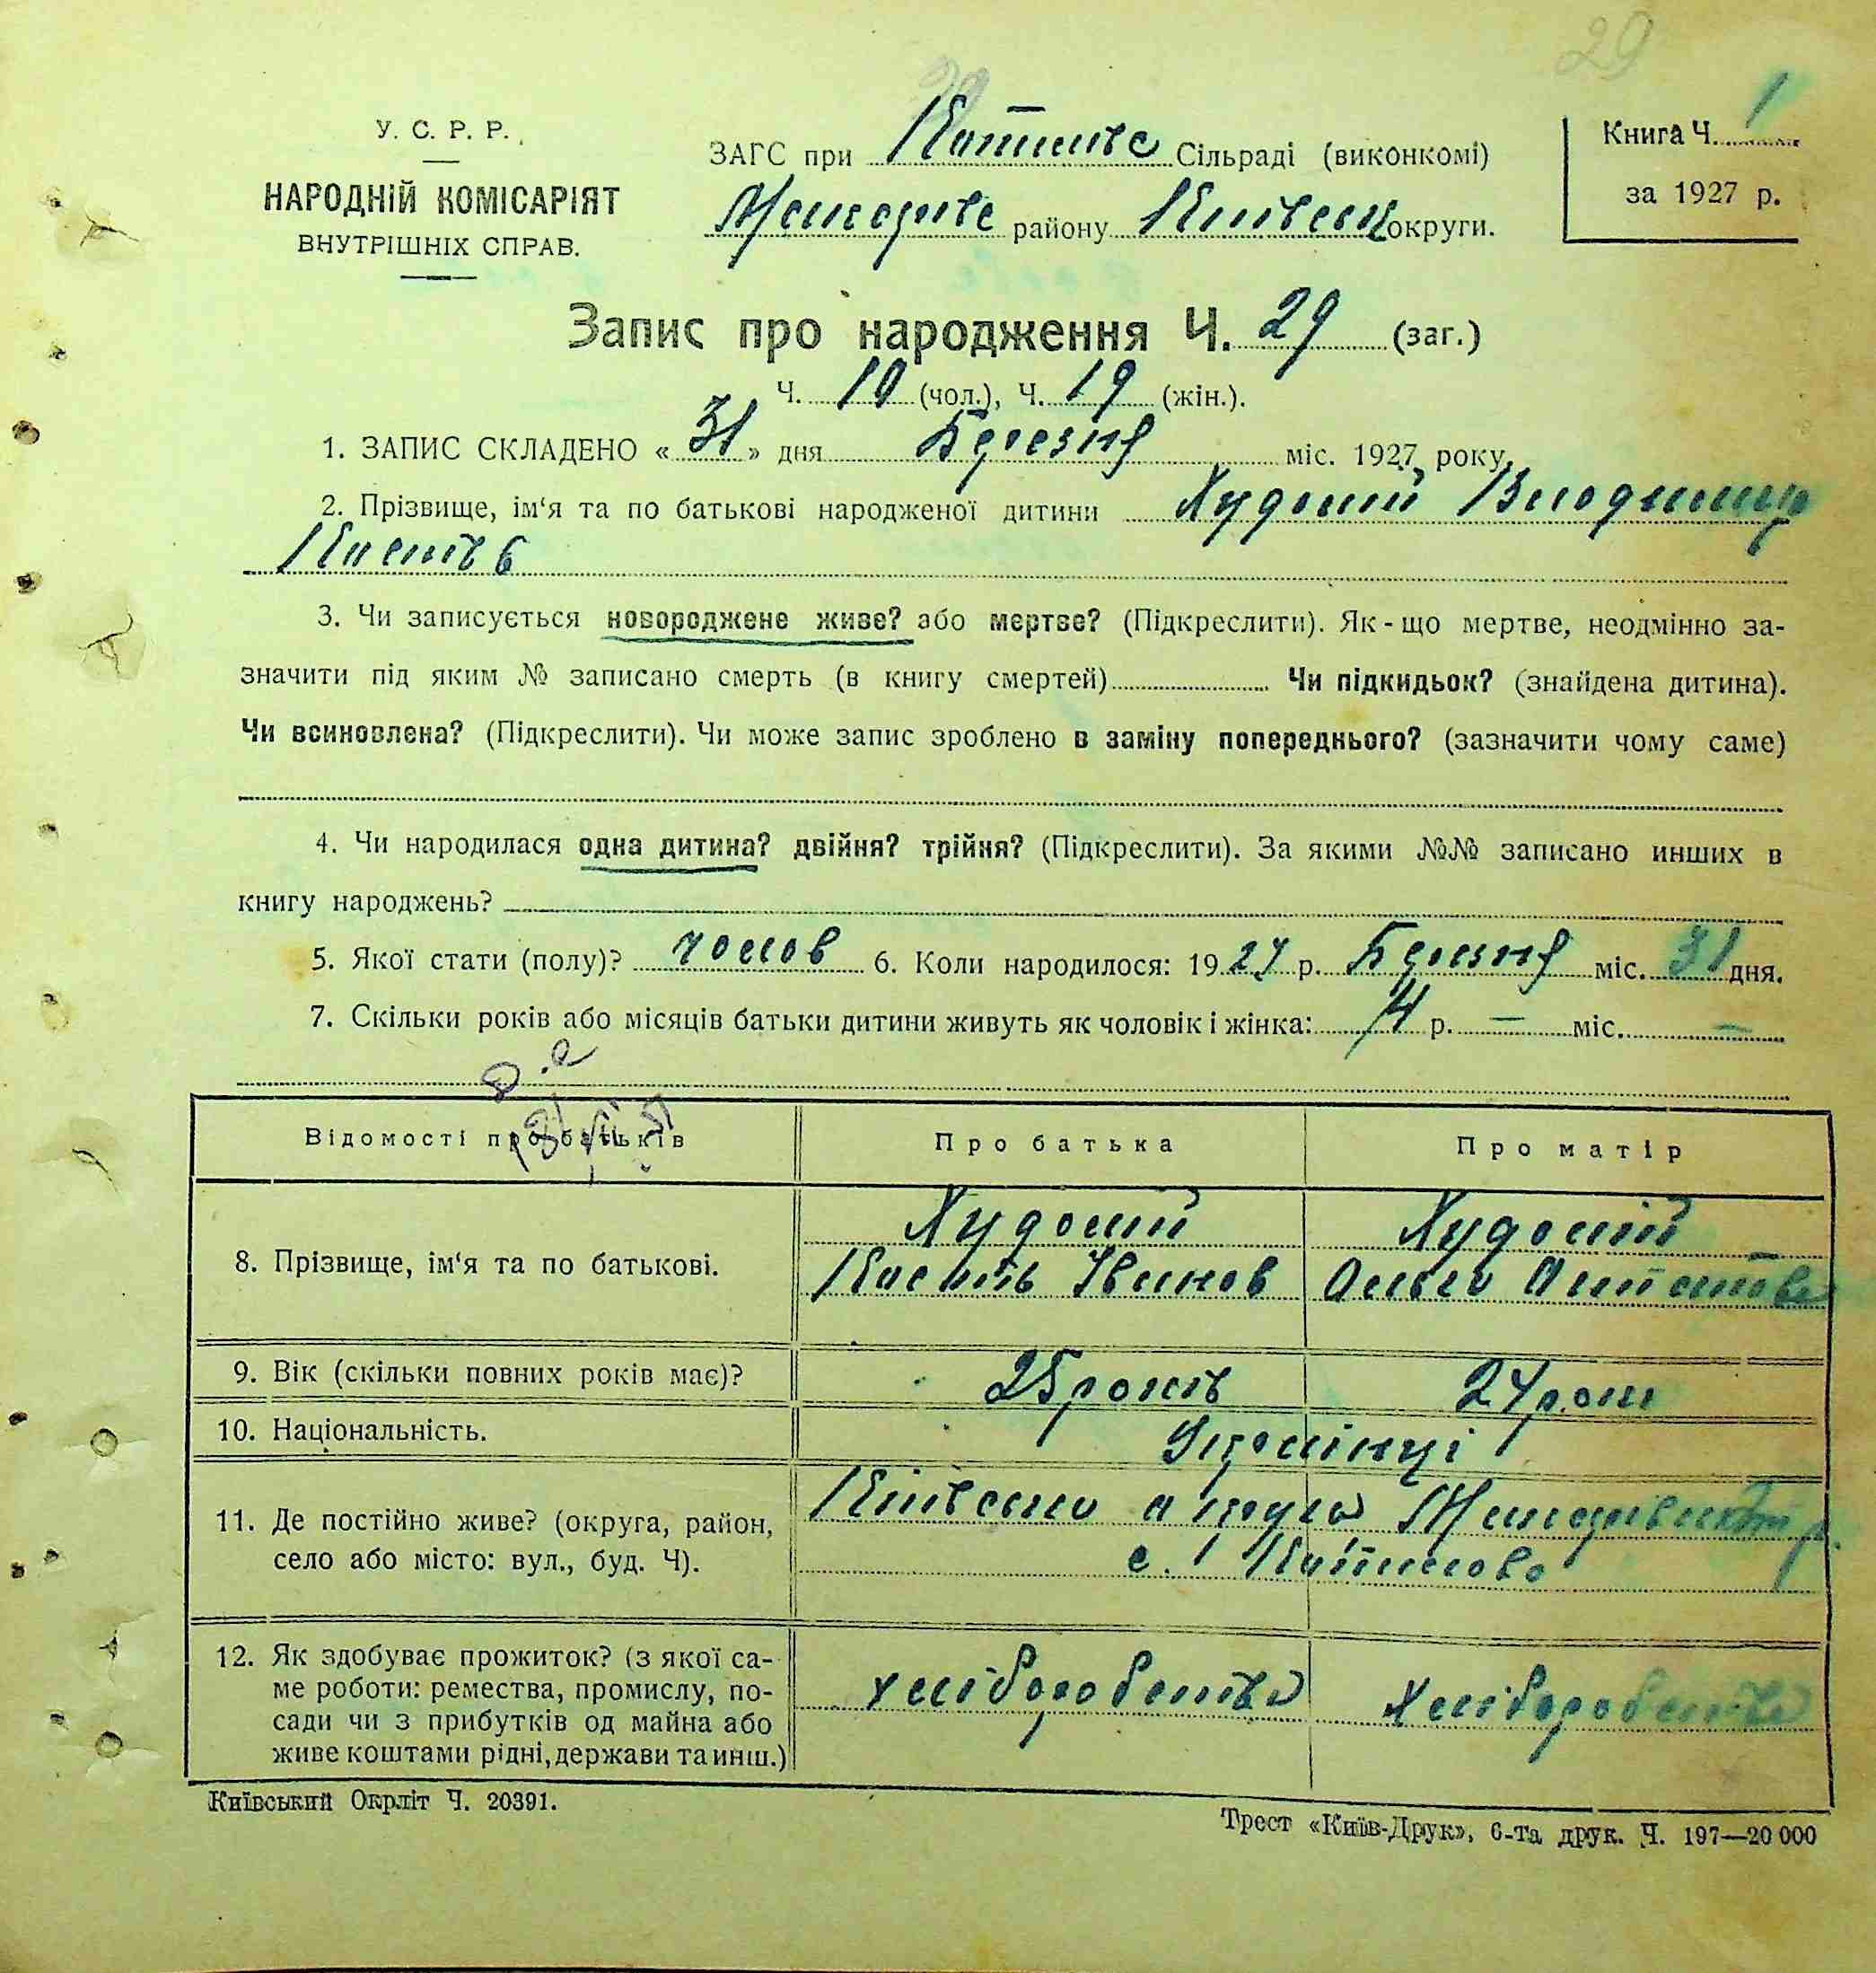 29
29
У. С. Р. Р.
НАРОДНІЙ КОМІСАРІЯТ
ВНУТРІШНІХ СПРАВ.
ЗАГС при Сільраді (виконкомі)
району округи.
Книга Ч. 1
за 1927 р.
Запис про народження Ч. 29 (заг.)
Ч. 10 (чол.), Ч. 19 (жін.).
1. ЗАПИС СКЛАДЕНО « 31 » дня Березня міс. 1927 року.
2. Прізвище, ім‘я та по батькові народженої дитини Худолій Володимир
3. Чи записується новороджене живе? або мертве? (Підкреслити). Як-що мертве, неодмінно за-
значити під яким № записано смерть (в книгу смертей) Чи підкидьок? (знайдена дитина).
Чи всиновлена? (Підкреслити). Чи може запис зроблено в заміну попереднього? (зазначити чому саме)
4. Чи народилася одна дитина? двійня? трійня? (Підкреслити). За якими №№ записано инших в
книгу народжень?
5. Якої стати (полу)? чолов 6. Коли народилося: 1927 р. Березня міс. 31 дня.
7. Скільки років або місяців батьки дитини живуть як чоловік і жінка: 4 р. — міс. —
Відомості про батьків Про батька Про матір
8. Прізвище, ім‘я та по батькові.
Худолій Худолій
Кость Іванов Ольга
9. Вік (скільки повних років має)? 25 років 24 роки
10. Національність. Українці
11. Де постійно живе? (округа, район,
село або місто: вул., буд. Ч).
округа
с.
12. Як здобуває прожиток? (з якої са-
ме роботи: ремества, промислу, по-
сади чи з прибутків од майна або
живе коштами рідні, держави та инш.)
хліборобство хліборобство
Київський Окрліт Ч. 20391.
Трест «Київ-Друк», 6-та друк. Ч. 197—20 000